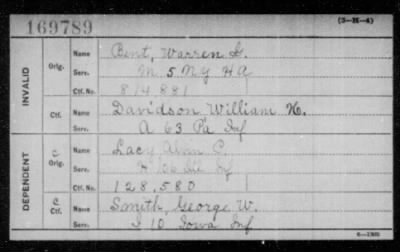 169789
(3—H—4)
INVALID
Orig.
Name Bent, Warren G.
Serv. M. 5 N.Y H A
Ctf. No. 814881
Ctf.
Name Davidson William H.
Serv. A 63 Pa Inf
DEPENDENT
C Orig.
Name Lacy C.
Serv. H 106 Ill Inf
Ctf. No. 128,580
C Ctf.
Name Smith, George W.
Serv. I 10 Iowa Inf